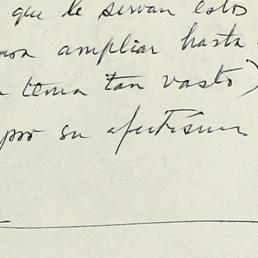 que le sirvan estos
para ampliar hasta
tema tan vasto)
por su afectísimo